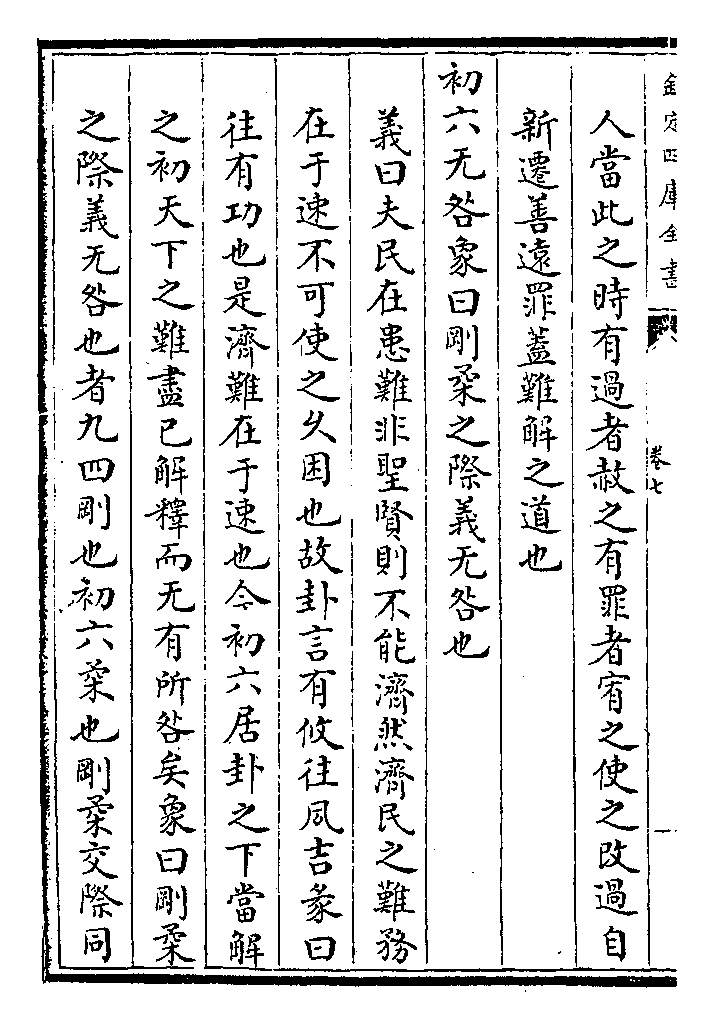 欽定四庫全書
卷七
人當此之時有過者赦之有罪者宥之使之改過自
新遷善遠罪蓋難解之道也
初六无咎象曰剛柔之際義无咎也
義曰夫民在患難非聖賢則不能濟然濟民之難務
在于速不可使之久困也故卦言有攸往夙吉彖曰
往有功也是濟難在于速也今初六居卦之下當解
之初天下之難盡已解釋而无有所咎矣象曰剛柔
之際義无咎也者九四剛也初六柔也剛柔交際同